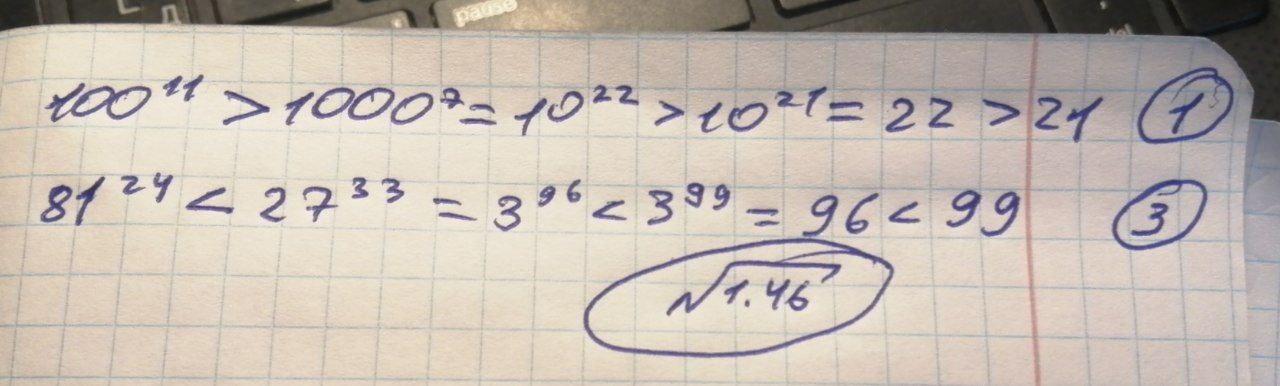 pause
100¹¹ > 1000⁷ = 10²² > 10²¹ = 22 > 21 ①
81²⁴ < 27³³ = 3⁹⁶ < 3⁹⁹ = 96 < 99 ③
√1.46